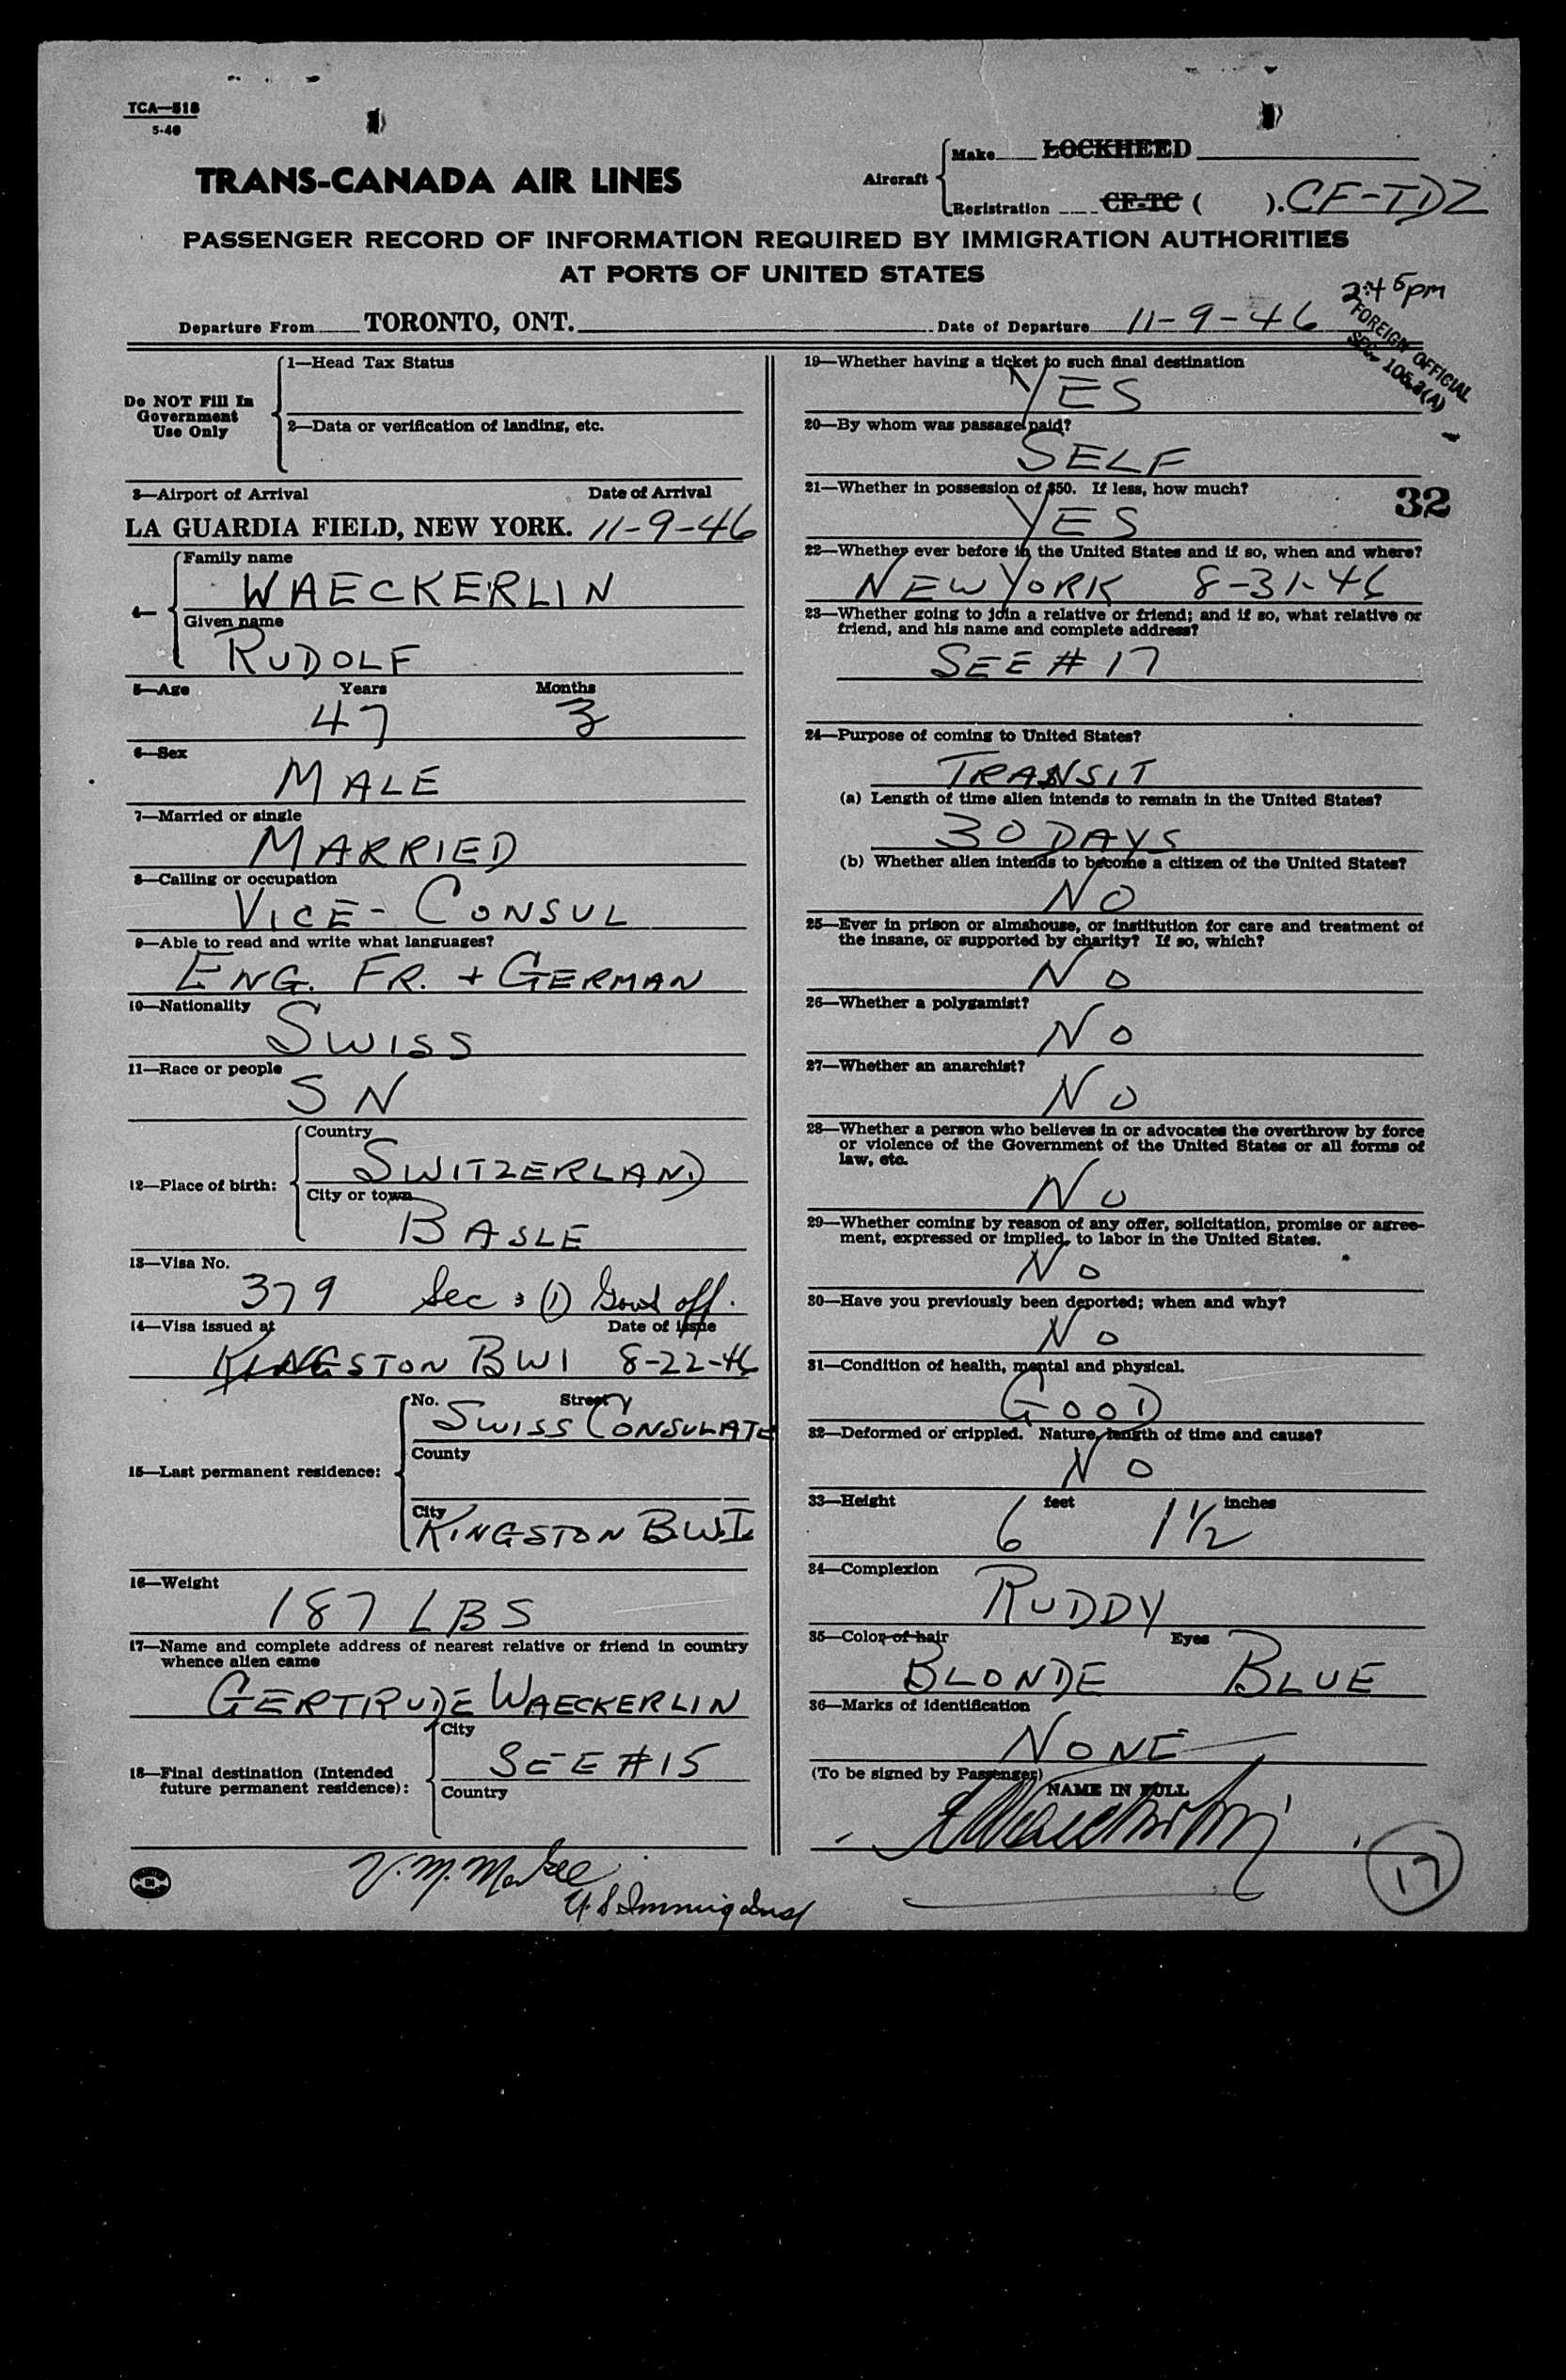 TCA—518
5-40
TRANS-CANADA AIR LINES
Aircraft
Make LOCKHEED
Registration CF-TC ( ). CF-TDZ
PASSENGER RECORD OF INFORMATION REQUIRED BY IMMIGRATION AUTHORITIES
AT PORTS OF UNITED STATES
2:45pm
Departure From TORONTO, ONT. Date of Departure 11-9-46
FOREIGN OFFICIAL
SEC. 105.3(A)
Do NOT Fill In
Government
Use Only
1—Head Tax Status
2—Data or verification of landing, etc.
3—Airport of Arrival Date of Arrival
LA GUARDIA FIELD, NEW YORK. 11-9-46
4—
Family name
WAECKERLIN
Given name
RUDOLF
5—Age Years Months
47 3
6—Sex
MALE
7—Married or single
MARRIED
8—Calling or occupation
VICE-CONSUL
9—Able to read and write what languages?
ENG. FR. + GERMAN
10—Nationality
SWISS
11—Race or people
SN
12—Place of birth:
Country
SWITZERLAND
City or town
BASLE
13—Visa No.
379 Sec 3 (1) Govt off.
14—Visa issued at Date of issue
KINGSTON BWI 8-22-46
15—Last permanent residence:
No. Street
SWISS CONSULATE
County
City
KINGSTON B.W.I.
16—Weight
187 LBS
17—Name and complete address of nearest relative or friend in country
whence alien came
GERTRUDE WAECKERLIN
18—Final destination (Intended
future permanent residence):
City
SEE #15
Country
19—Whether having a ticket to such final destination
YES
20—By whom was passage paid?
SELF
21—Whether in possession of $50. If less, how much?
YES
32
22—Whether ever before in the United States and if so, when and where?
NEW YORK 8-31-46
23—Whether going to join a relative or friend; and if so, what relative or
friend, and his name and complete address?
SEE #17
24—Purpose of coming to United States?
TRANSIT
(a) Length of time alien intends to remain in the United States?
30 DAYS
(b) Whether alien intends to become a citizen of the United States?
NO
25—Ever in prison or almshouse, or institution for care and treatment of
the insane, or supported by charity? If so, which?
NO
26—Whether a polygamist?
NO
27—Whether an anarchist?
NO
28—Whether a person who believes in or advocates the overthrow by force
or violence of the Government of the United States or all forms of
law, etc.
NO
29—Whether coming by reason of any offer, solicitation, promise or agree-
ment, expressed or implied, to labor in the United States.
NO
30—Have you previously been deported; when and why?
NO
31—Condition of health, mental and physical.
GOOD
32—Deformed or crippled. Nature, length of time and cause?
NO
33—Height feet inches
6 1 1/2
34—Complexion
RUDDY
35—Color of hair Eyes
BLONDE BLUE
36—Marks of identification
NONE
(To be signed by Passenger)
NAME IN FULL
17
U.S. Immig Insp